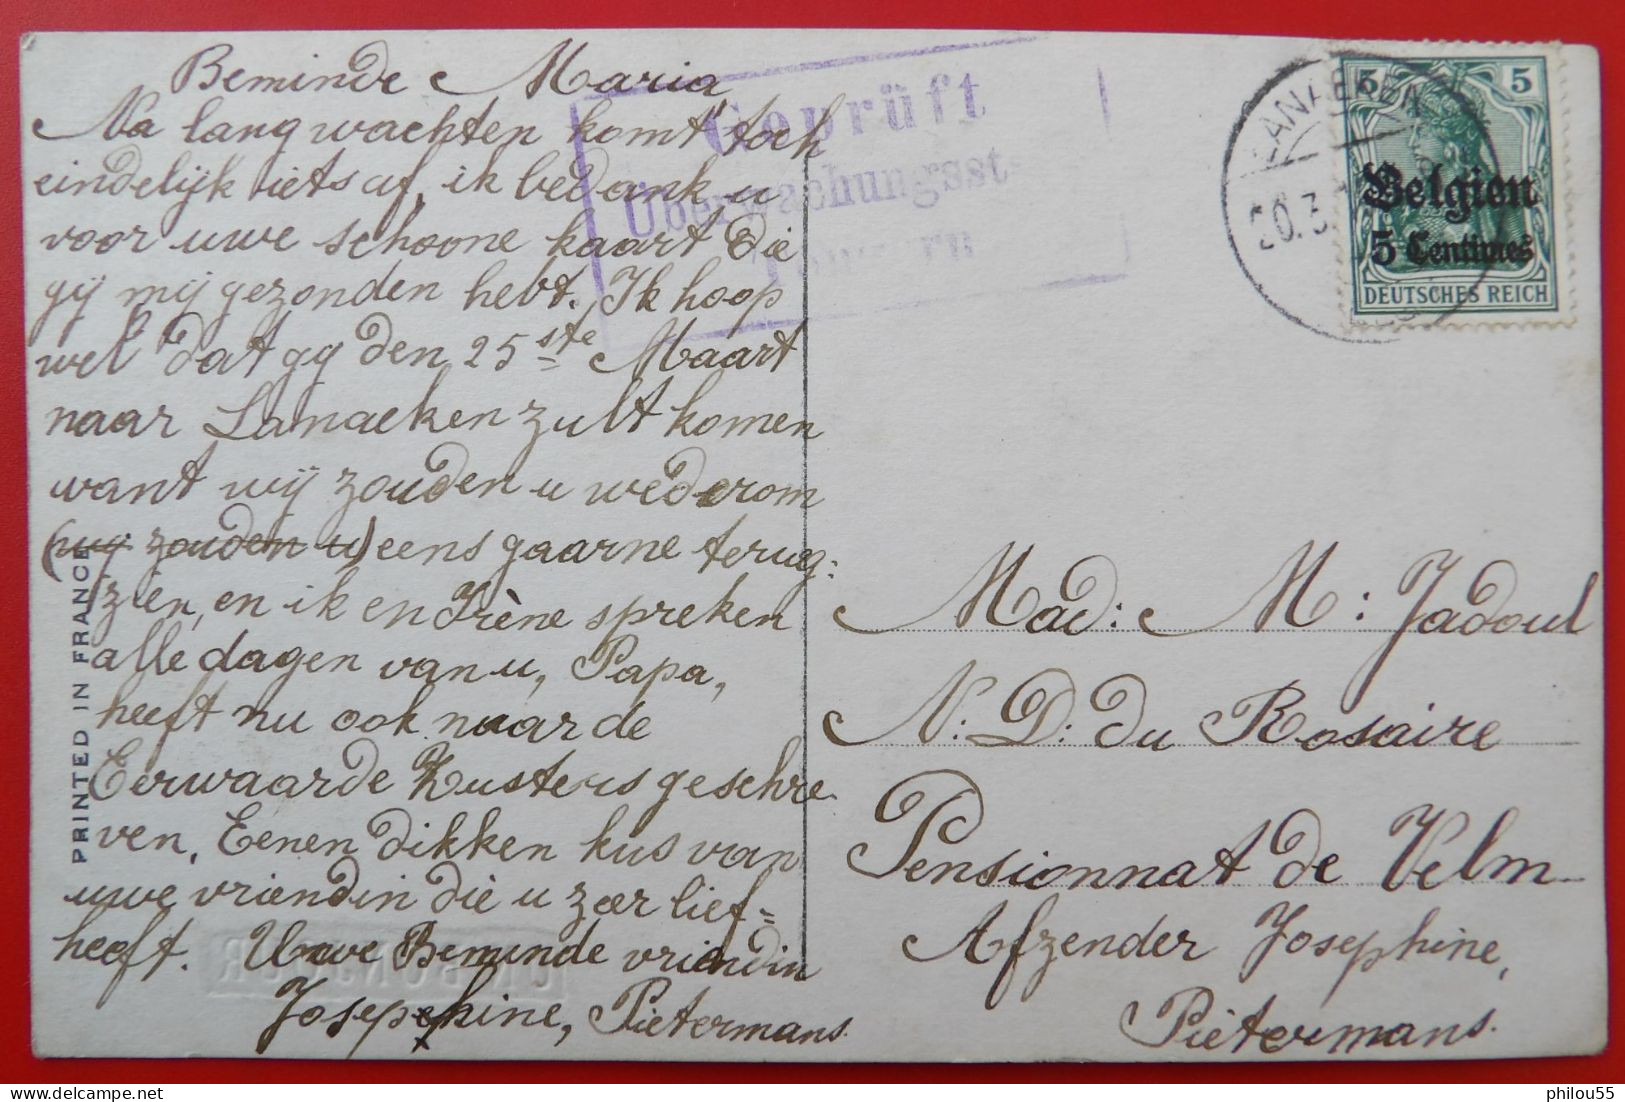 Beminde Maria
Na lang wachten komt toch
eindelijk iets af, ik bedank u
voor uwe schoone kaart die
gij mij gezonden hebt. Ik hoop
wel dat gij den 25ste Maart
naar Lanaeken zult komen
want wij zouden u wederom
(wij zouden u) eens gaarne terug-
zien, en ik en Irène spreken
alle dagen van u, Papa,
heeft nu ook naar de
Eerwaarde Zusters geschre
ven, Eenen dikken kus van
uwe vriendin die u zeer lief=
heeft. Uwe Beminde vriendin
Josephine, Pietermans.
PRINTED IN FRANCE
Geprüft
Überwachungsst.
LANAEKEN
20.3.
5 5
Belgien
5 Centimes
DEUTSCHES REICH
Mad: M: Jadoul
N. D. du Rosaire
Pensionnat de Velm
Afzender Josephine,
Pietermans.
philou55